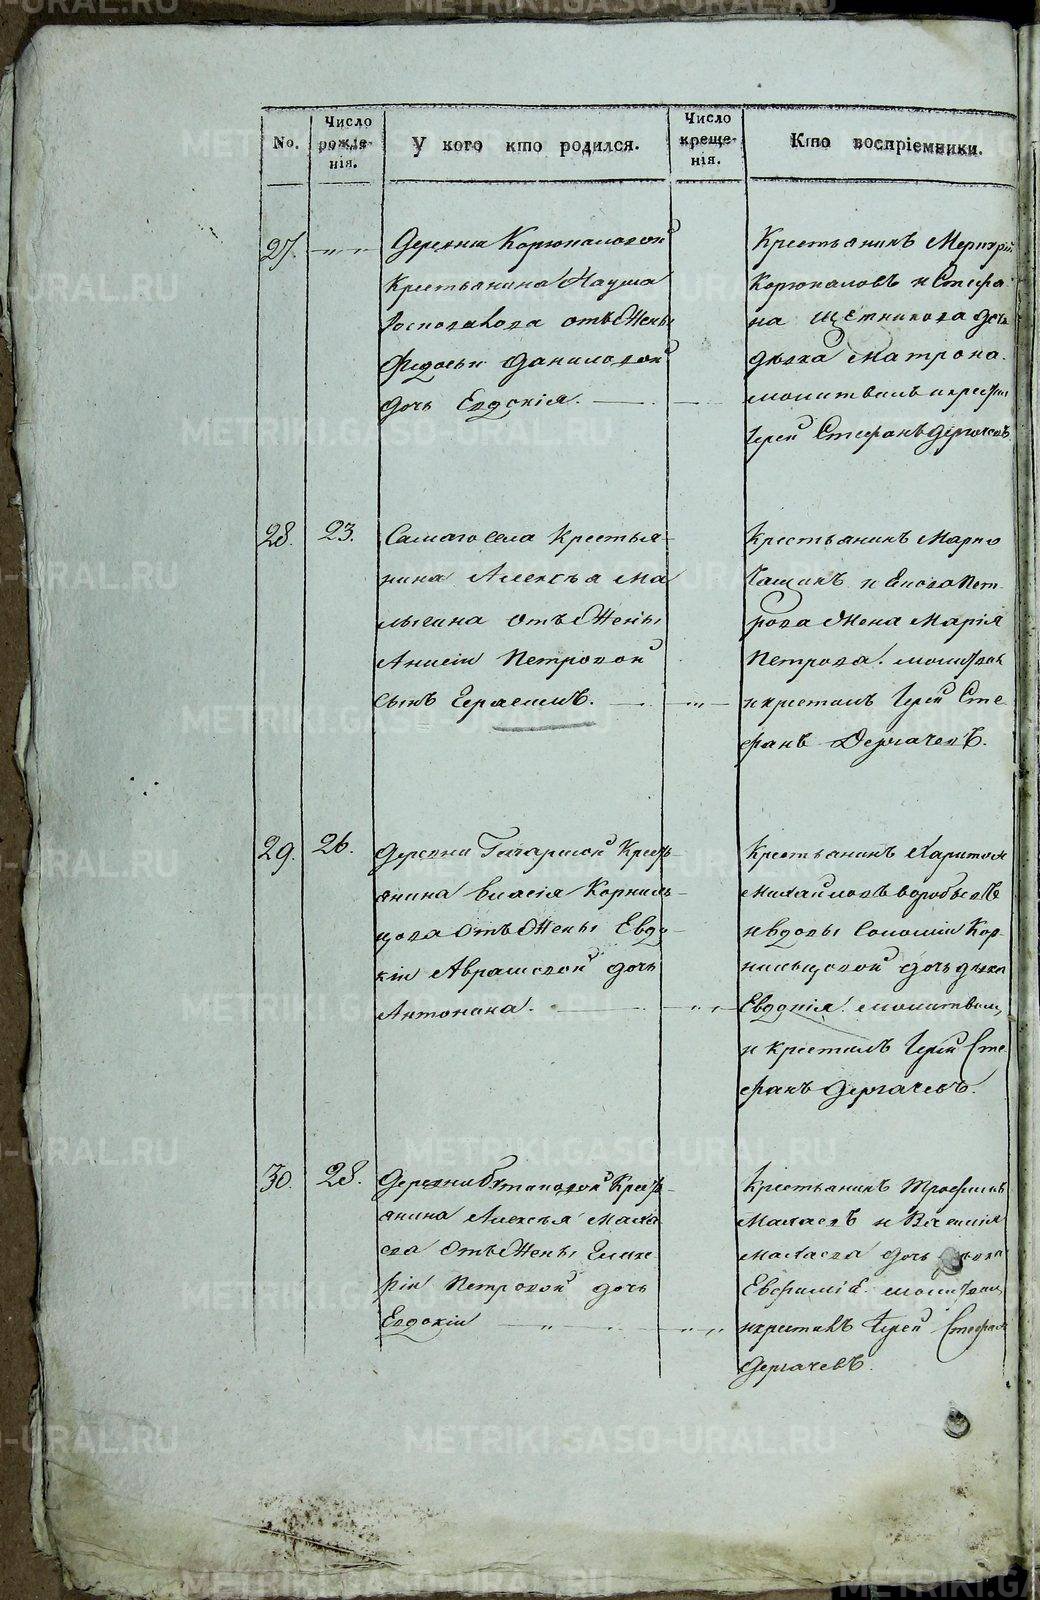 No.
Число рожде-нія.
У кого кто родился.
Число креще-нія.
Кто воспріемники.
27.
Деревни Корюкаловой
Крестьянина Наума
отъ Жены
Федосьи Даниловой
дочь Евдокія.
Крестьянинъ Меркурій
Корюкаловъ и Стефа
на Щетникова дочь
дѣвка Матрона.
молитвилъ и крестил
Іерей Стефанъ Дергачевъ
28.
23.
Самаго села Крестья-
нина Алексѣя Ма
лыгина отъ Жены
Анисіи Петровой
сынъ Герасимъ.
Крестьянинъ Марко
и
Петрова Жена Марія
Петрова. молитвил
и крестилъ Іерей Сте
фанъ Дергачевъ.
29.
26.
Деревни Крестъ-
янина Власія Корниль-
цова отъ Жены Евдо-
кіи Аврамовой дочь
Антонина.
Крестьянинъ Харитон
Михайловъ Воробьевъ
и вдовы Соломіи Кор-
нильцовой дочь дѣвка
Евдокія. молитвилъ
и крестилъ Іерей Сте
фанъ Дергачевъ.
30.
28.
Деревни Крестъ-
янина Алексѣя Мала
ева отъ Жены Глике-
ріи Петровой дочь
Евдокіи
Крестьянинъ Трофимъ
Малаевъ и Василія
Малаева дочь дѣвка
Евфимія. молитвил
и крестилъ Іерей Стефанъ
Дергачевъ.
METRIKI.GASO-URAL.RU